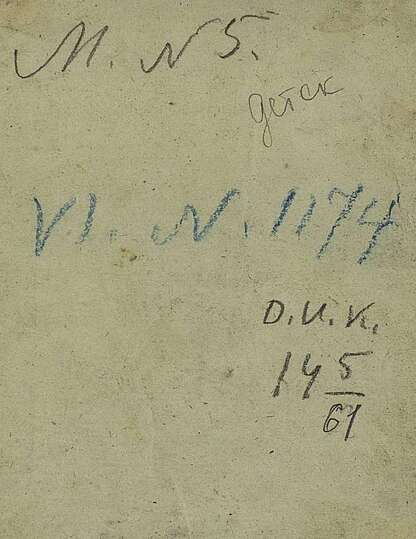 М. N 5.
детск
VI. N. 1174
О.И.К.
14 5/61